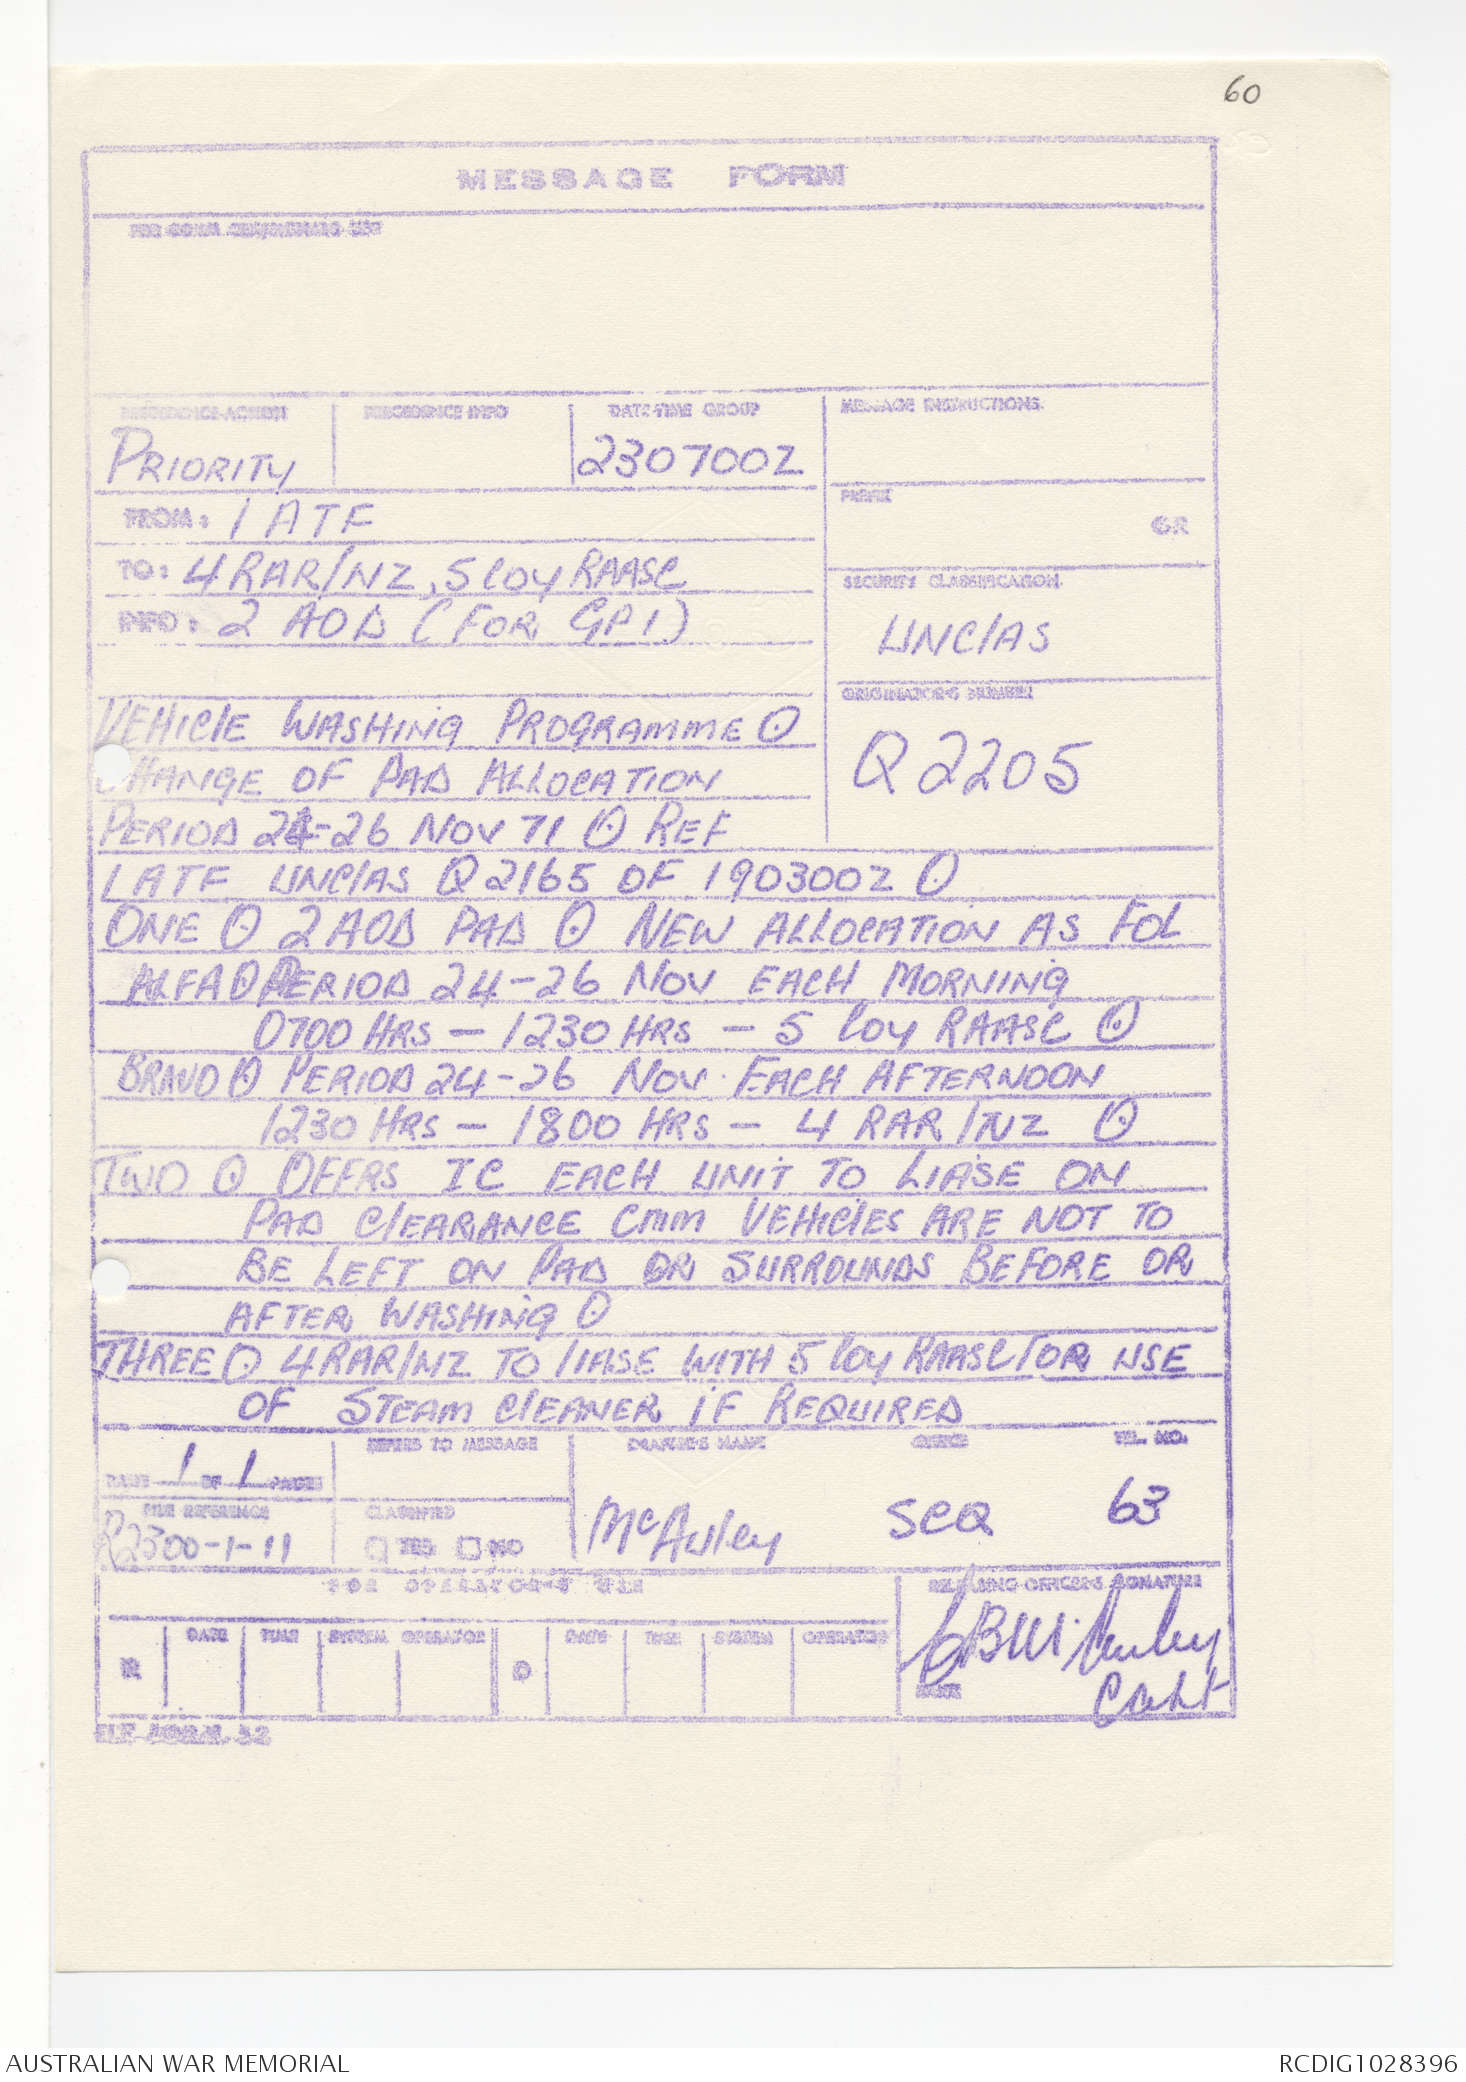 60
MESSAGE FORM
FOR COMM CEN/SIGNALS USE
PRECEDENCE-ACTION
PRECEDENCE INFO
DATE-TIME GROUP
MESSAGE INSTRUCTIONS
PRIORITY
230700Z
FROM: 1 ATF
PREFIX
GR
TO: 4 RAR/NZ, 5 COY RAASC
SECURITY CLASSIFICATION
INFO: 2 AOD (FOR GP1)
UNCLAS
ORIGINATOR'S NUMBER
VEHICLE WASHING PROGRAMME ⊙
CHANGE OF PAD ALLOCATION
Q 2205
PERIOD 24-26 NOV 71 ⊙ REF
1 ATF UNCLAS Q 2165 OF 190300Z ⊙
ONE ⊙ 2 AOD PAD ⊙ NEW ALLOCATION AS FOL
ALFA ⊙ PERIOD 24-26 NOV EACH MORNING
0700 HRS - 1230 HRS - 5 COY RAASC ⊙
BRAVO ⊙ PERIOD 24-26 NOV. EACH AFTERNOON
1230 HRS - 1800 HRS - 4 RAR/NZ ⊙
TWO ⊙ OFFRS IC EACH UNIT TO LIAISE ON
PAD CLEARANCE CMM VEHICLES ARE NOT TO
BE LEFT ON PAD OR SURROUNDS BEFORE OR
AFTER WASHING ⊙
THREE ⊙ 4 RAR/NZ TO LIASE WITH 5 COY RAASC FOR USE
OF STEAM CLEANER IF REQUIRED
PAGE 1 OF 1 PAGES
REFERS TO MESSAGE
DRAFTER'S NAME
OFFICE
TEL. NO.
FILE REFERENCE
CLASSIFIED
R2300-1-11
YES NO
McAuley
SCQ
63
FOR OPERATOR'S USE
RELEASING OFFICER'S SIGNATURE
R
DATE
TIME
SYSTEM
OPERATOR
D
DATE
TIME
SYSTEM
OPERATOR
RANK
Capt
AUSTRALIAN WAR MEMORIAL
RCDIG1028396